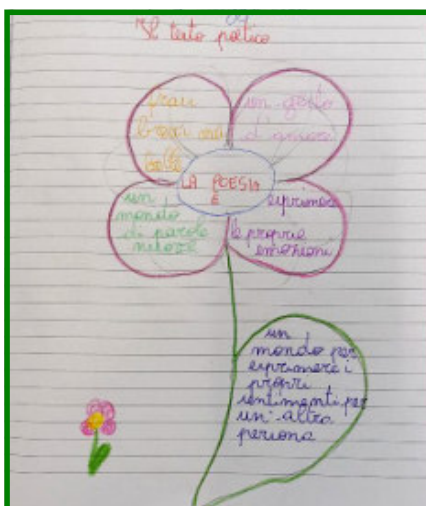 Il testo poetico
frasi
brevi ma
belle
un gesto
d'amore
LA POESIA
È
un
mondo
di parole
nuove
esprimere
le proprie
emozioni
un
mondo per
esprimere i
propri
sentimenti per
un'altra
persona